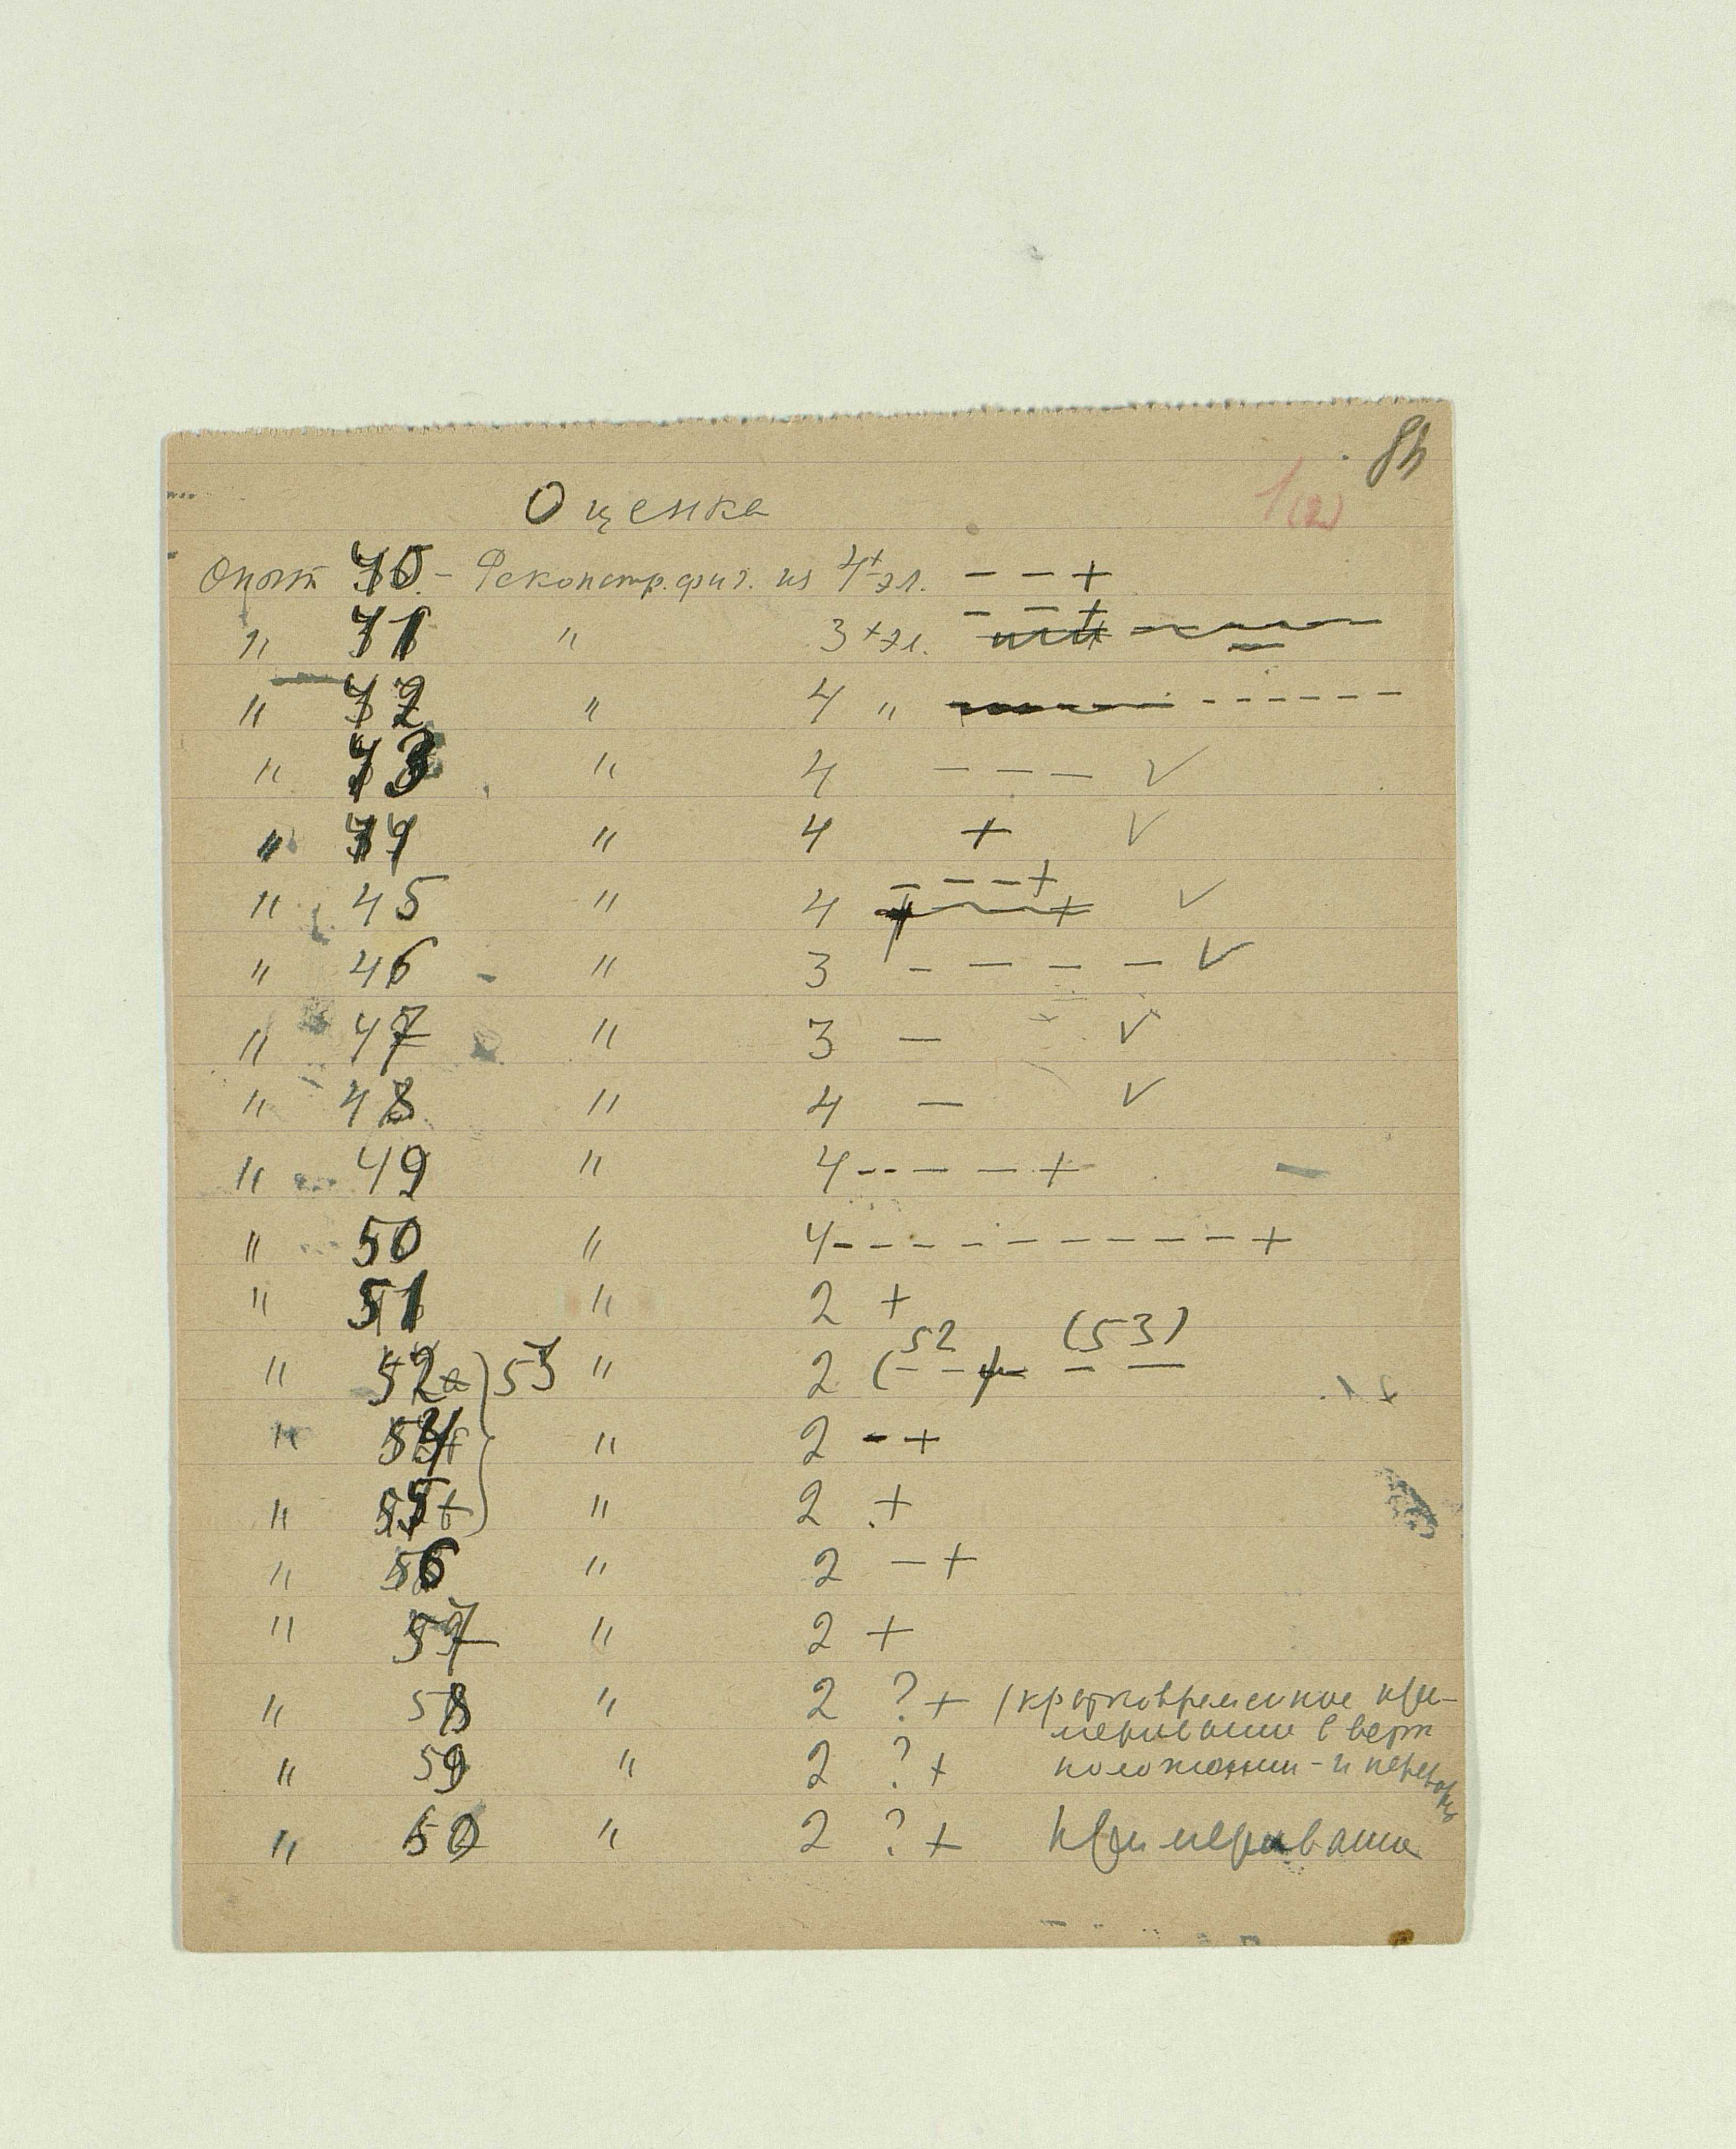 84
1(2)
Оценка
Опыт 40 - Реконстр. фиг. из 4х эл. – – +
" 41 " 3х эл. – – +
" 42 " 4 " – – – – – –
" 43 " 4 – – – V
" 44 " 4 + V
" 45 " 4 – – – + V
" 46 " 3 – – – – V
" 47 " 3 – V
" 48 " 4 – V
" 49 " 4 – – – – +
" 50 " 4 – – – – – – – – – +
" 51 " 2 +
52 (53)
" 52 } 53 " 2 (– – – –
" 54 " 2 – +
" 55 " 2 +
" 56 " 2 – +
" 57 " 2 +
" 58 " 2 ? + (кратковременное при-
меривание в верт
" 59 " 2 ? + положении - и
" " 2 ? + примеривание